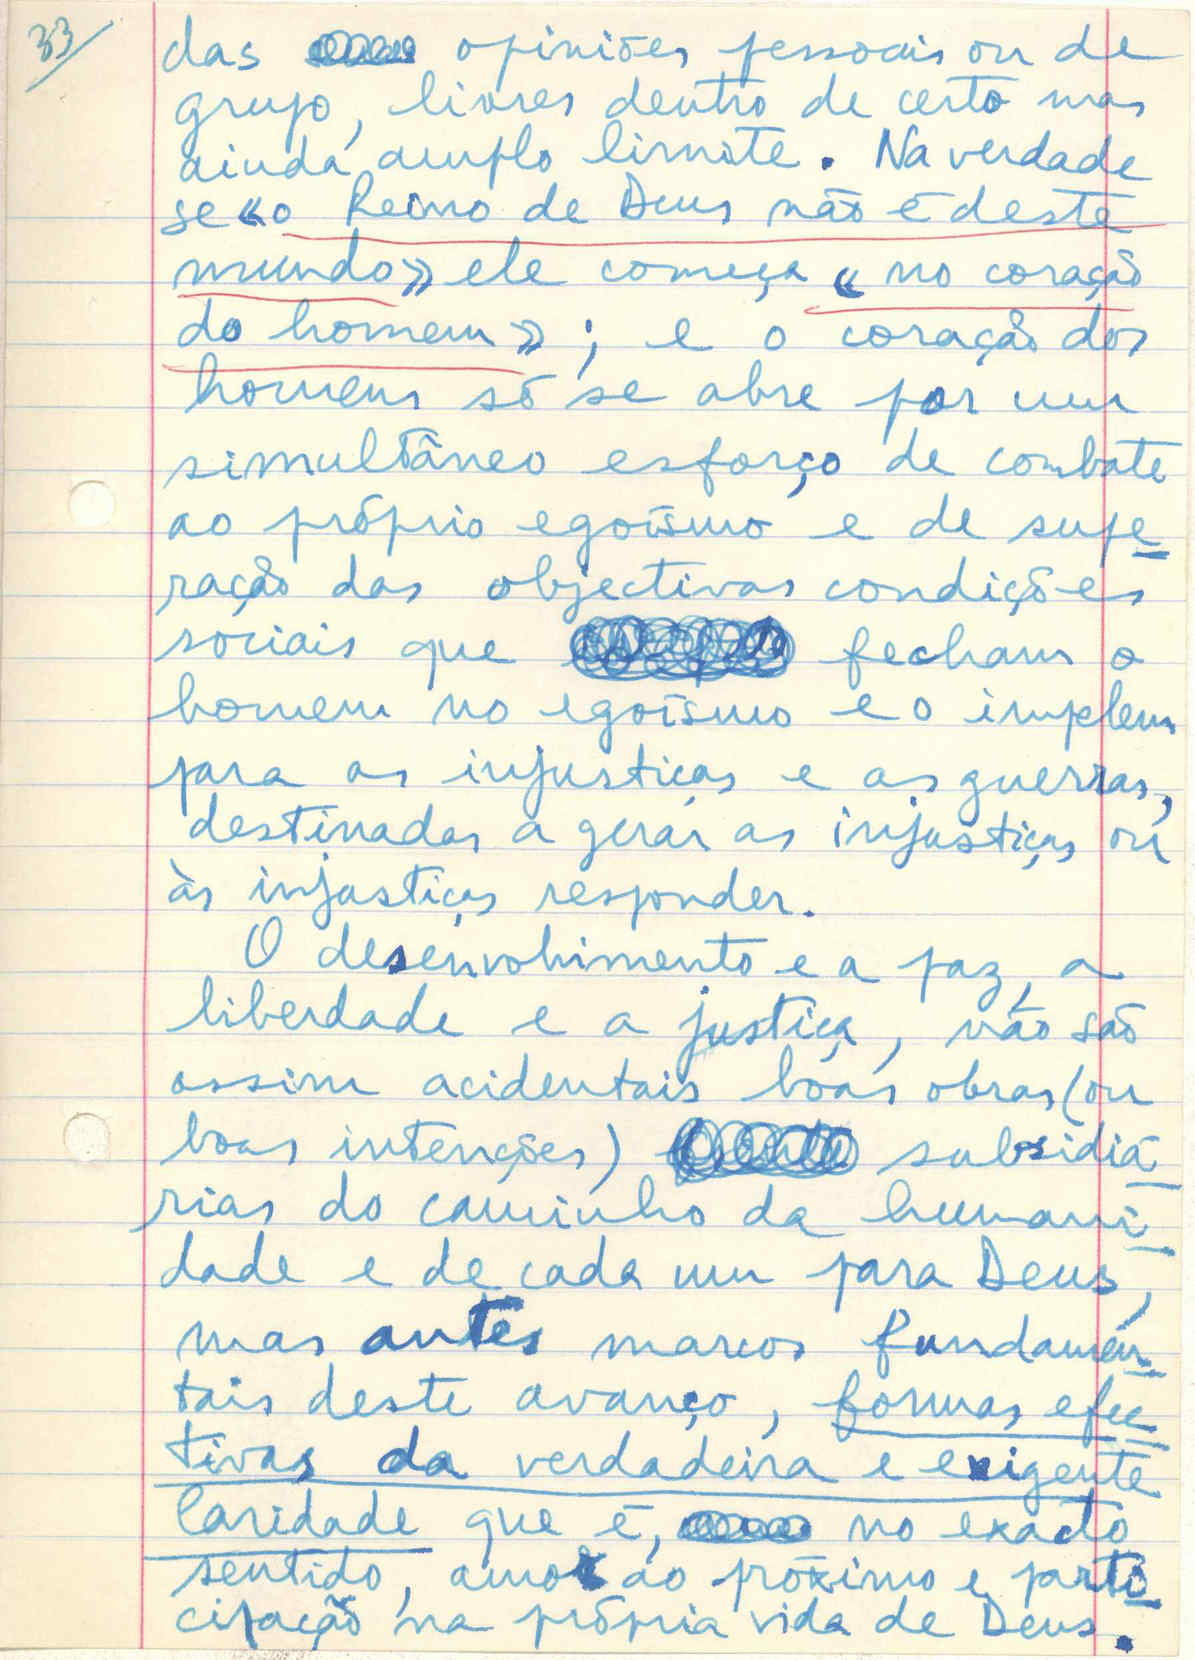 33
das opiniões pessoais ou de
grupo, livres dentro de certo mas
ainda amplo limite. Na verdade
se «o Reino de Deus não é deste
mundo» ele começa «no coração
do homem»; e o coração dos
homens só se abre por um
simultâneo esforço de combate
ao próprio egoísmo e de supe-
ração das objectivas condições
sociais que fecham o
homem no egoísmo e o impelem
para as injustiças e as guerras,
destinadas a gerar as injustiças ou
às injustiças responder.
O desenvolvimento e a paz, a
liberdade e a justiça, não são
assim acidentais boas obras (ou
boas intenções) subsidiá-
rias do caminho da humani-
dade e de cada um para Deus,
mas antes marcos fundamen-
tais deste avanço, formas efec-
tivas da verdadeira e exigente
Caridade que é, no exacto
sentido, amor ao próximo e parti-
cipação na própria vida de Deus.